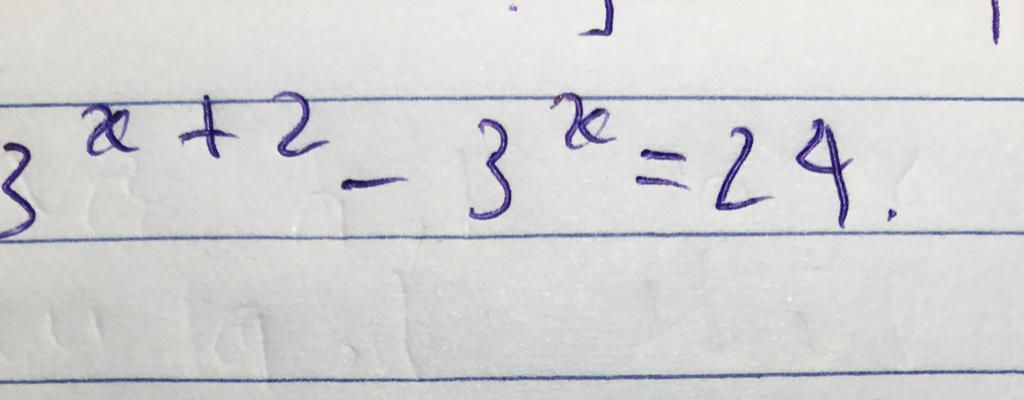 3^{x+2} - 3^x = 24.